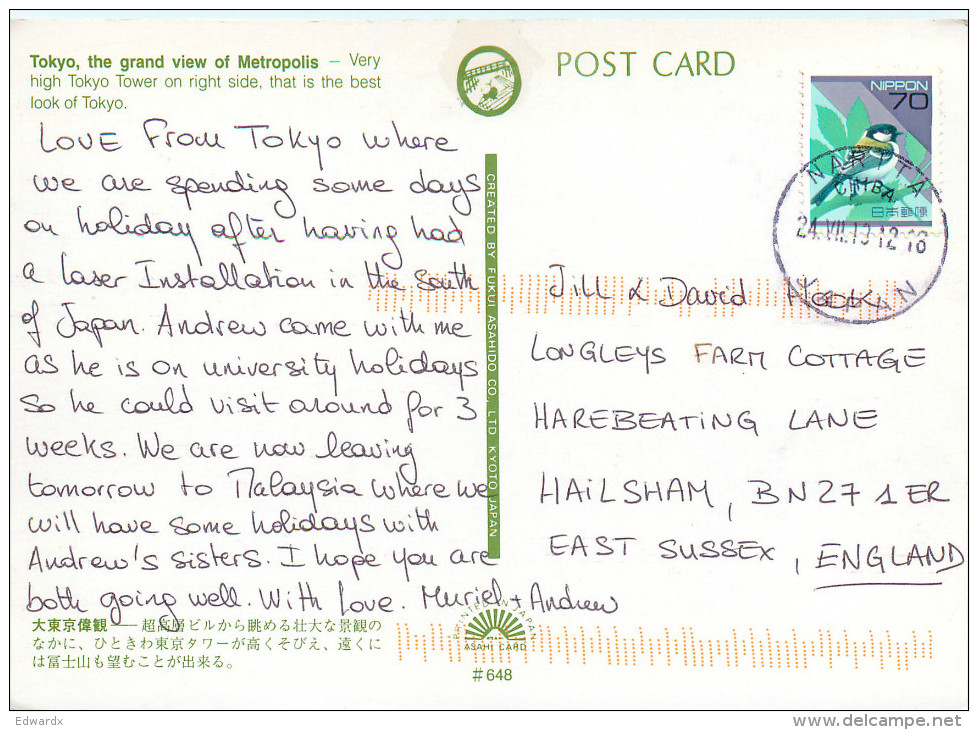 Tokyo, the grand view of Metropolis – Very
high Tokyo Tower on right side, that is the best
look of Tokyo.
POST CARD
NIPPON
70
日本郵便
NARITA
CHIBA
24.VII.13 12-18
JAPAN
LOVE From TOKYO where
we are spending some days
on holiday after having had
a laser Installation in the south
of Japan. Andrew came with me
as he is on university holidays
So he could visit around for 3
weeks. We are now leaving
tomorrow to Malaysia where we
will have some holidays with
Andrew's sisters. I hope you are
both going well. With love. Muriel + Andrew
CREATED BY FUKUI ASAHIDO CO., LTD KYOTO JAPAN
Jill & David Hook
LONGLEYS FARM COTTAGE
HAREBEATING LANE
HAILSHAM, BN27 1ER
EAST SUSSEX, ENGLAND
大東京偉観――超高層ビルから眺める壮大な景観の
なかに、ひときわ東京タワーが高くそびえ、遠くに
は冨士山も望むことが出来る。
PRINTED IN JAPAN
ASAHI CARD
#648
Edwardx
www.delcampe.net